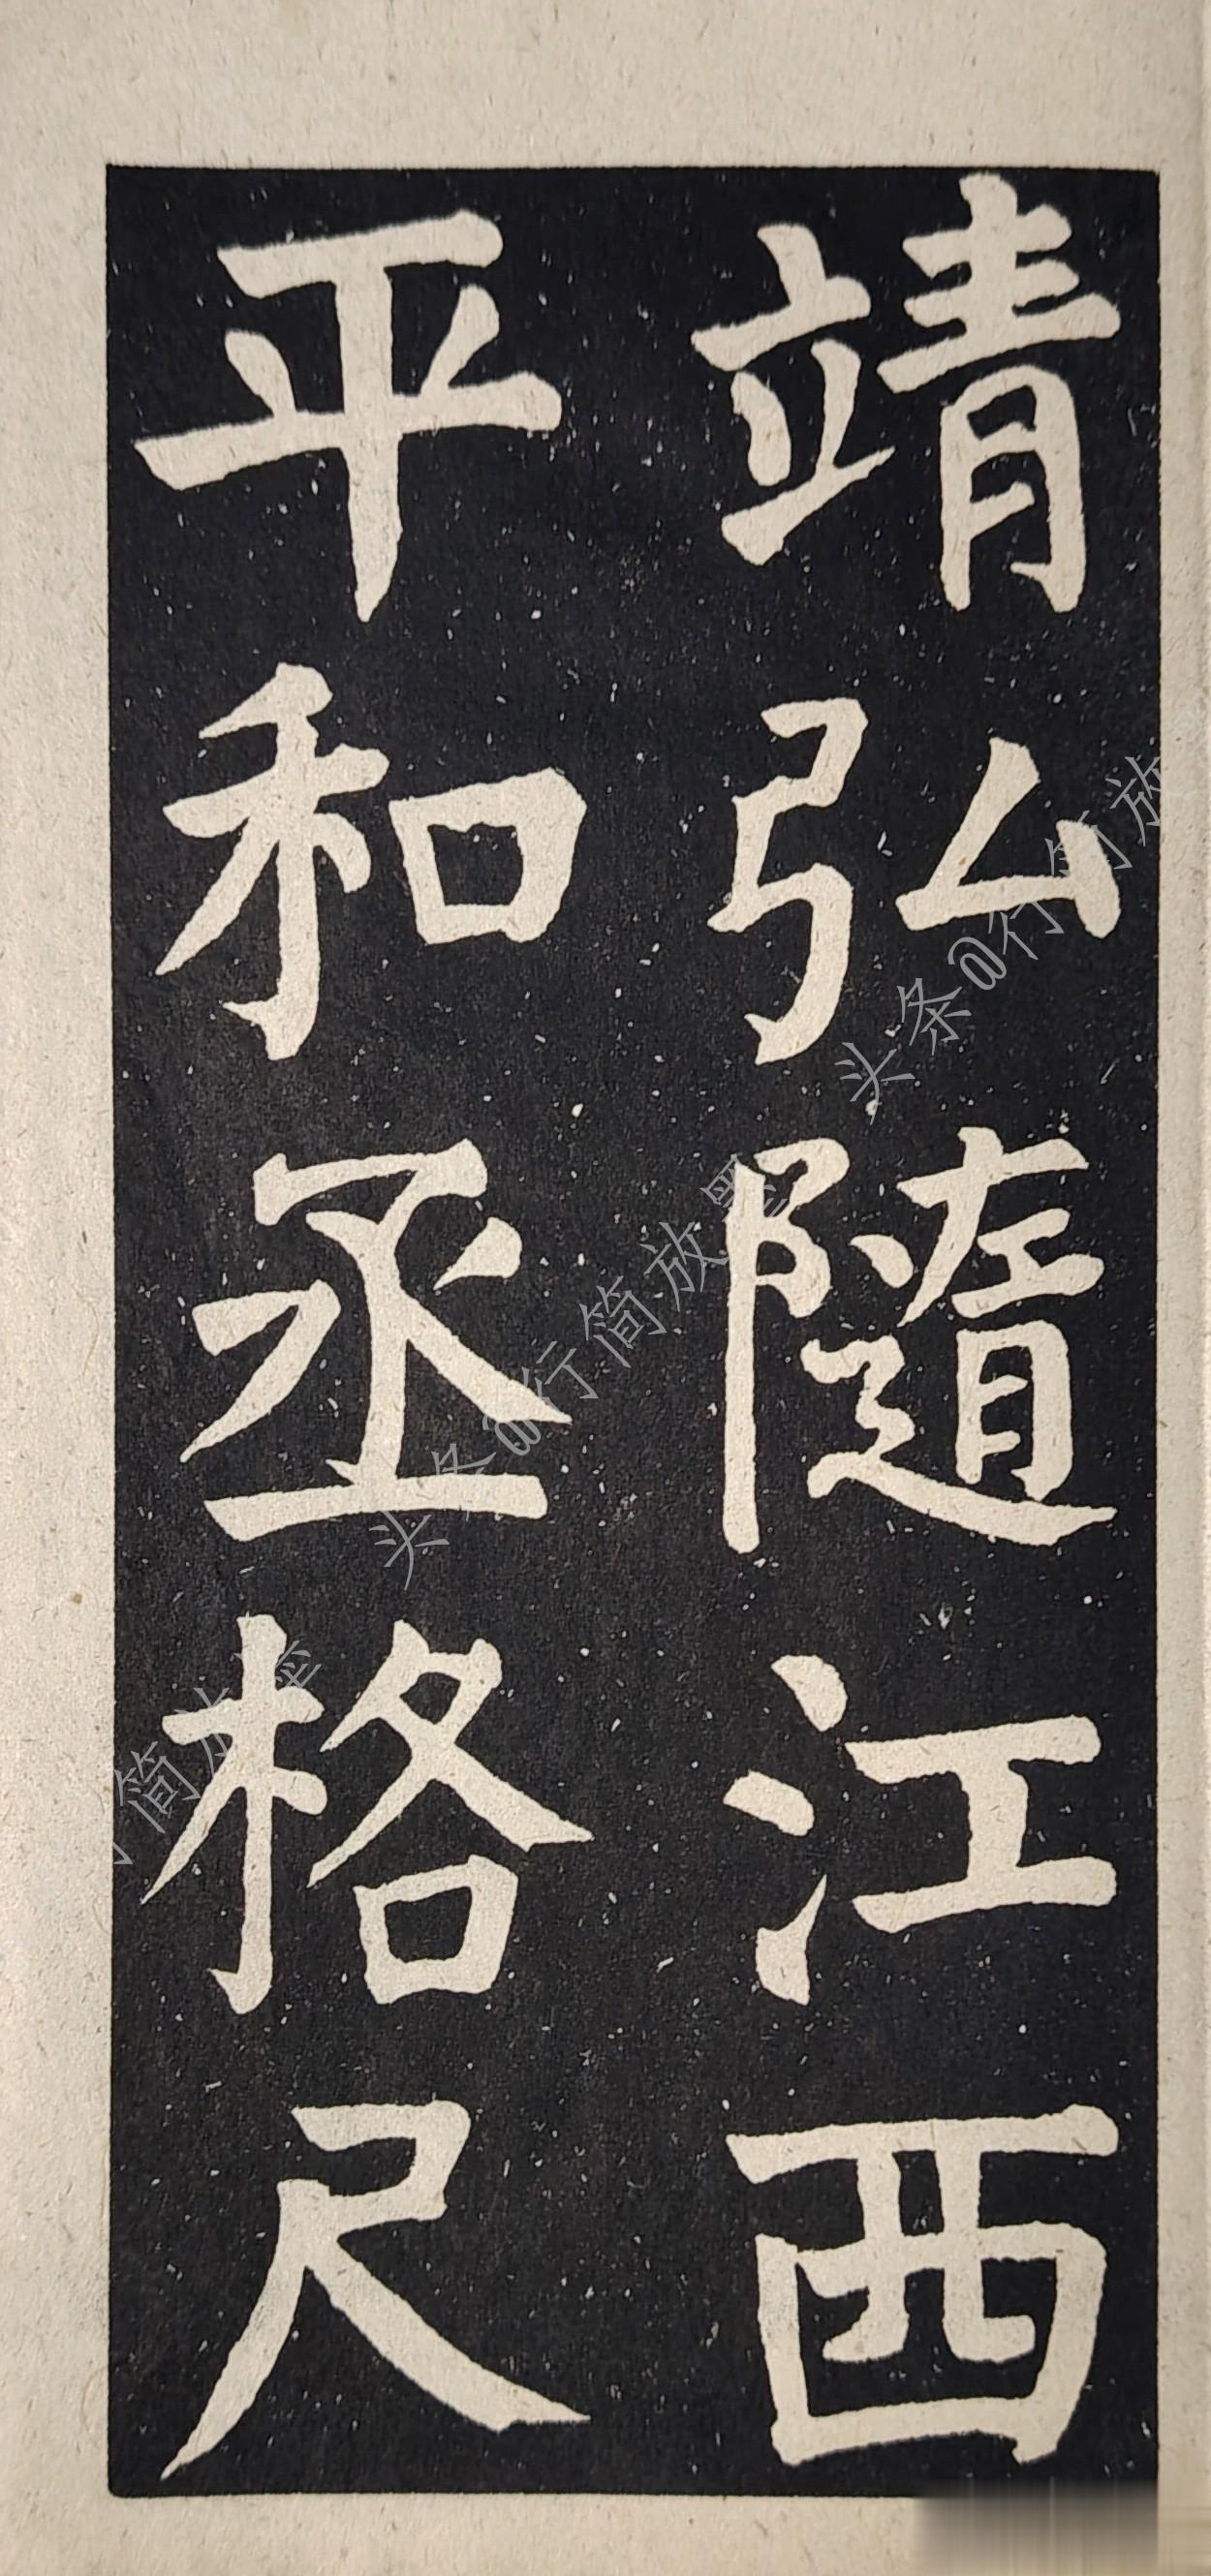 靖弘隨江西
平和丞格尺
头条@行简放
头条@行简放
简